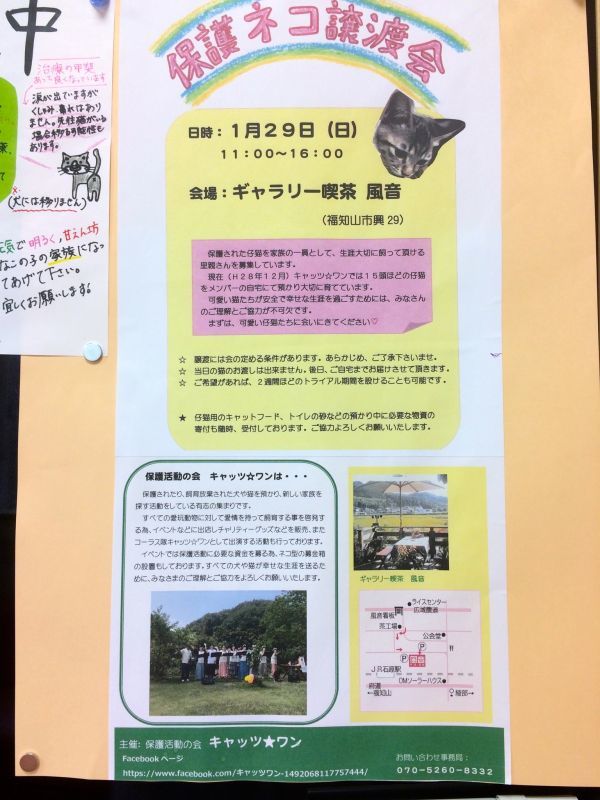 中
治療の甲斐
あって良くなっています
涙が出ていますが
くしゃみ・鼻れはあり
ません。先住猫がいる
場合移る可能性も
あります。
(犬には移りません)
元気で明るく、甘えん坊
なこの子の家族になっ
てあげて下さい。
宜しくお願いします。
保護ネコ譲渡会
日時：1月29日（日）
11:00～16:00
会場：ギャラリー喫茶 風音
（福知山市興29）
保護された仔猫を家族の一員として、生涯大切に飼って頂ける
里親さんを募集しています。
現在（H28年12月）キャッツ☆ワンでは15頭ほどの仔猫
をメンバーの自宅にて預かり大切に育てています。
可愛い猫たちが安全で幸せな生涯を過ごすためには、みなさん
のご理解とご協力が不可欠です。
まずは、可愛い仔猫たちに会いにきてください♡
☆ 譲渡には会の定める条件があります。あらかじめ、ご了承下さいませ。
☆ 当日の猫のお渡しは出来ません。後日、ご自宅までお届けさせて頂きます。
☆ ご希望があれば、2週間ほどのトライアル期間を設けることも可能です。
★ 仔猫用のキャットフード、トイレの砂などの預かり中に必要な物資の
寄付も随時、受付しております。ご協力よろしくお願いいたします。
保護活動の会 キャッツ☆ワンは・・・
保護されたり、飼育放棄された犬や猫を預かり、新しい家族を
探す活動をしている有志の集まりです。
すべての愛玩動物に対して愛情を持って飼育する事を啓発す
る為、イベントなどに出店しチャリティーグッズなどを販売、また
コーラス隊キャッツ☆ワンとして出演する活動も行っております。
イベントでは保護活動に必要な資金を募る為、ネコ型の募金箱
の設置もしております。すべての犬や猫が幸せな生涯を送るた
めに、みなさまのご理解とご協力をよろしくお願いいたします。
ギャラリー喫茶 風音
ライスセンター
広域農道
風音看板
茶工場
公会堂
P
P
風音
JR石原駅
DMソーラーハウス
府道
←福知山
綾部→
主催：保護活動の会 キャッツ★ワン
Facebookページ
https://www.facebook.com/キャッツワン-1492068117757444/
お問い合わせ事務局：
070-5260-8332